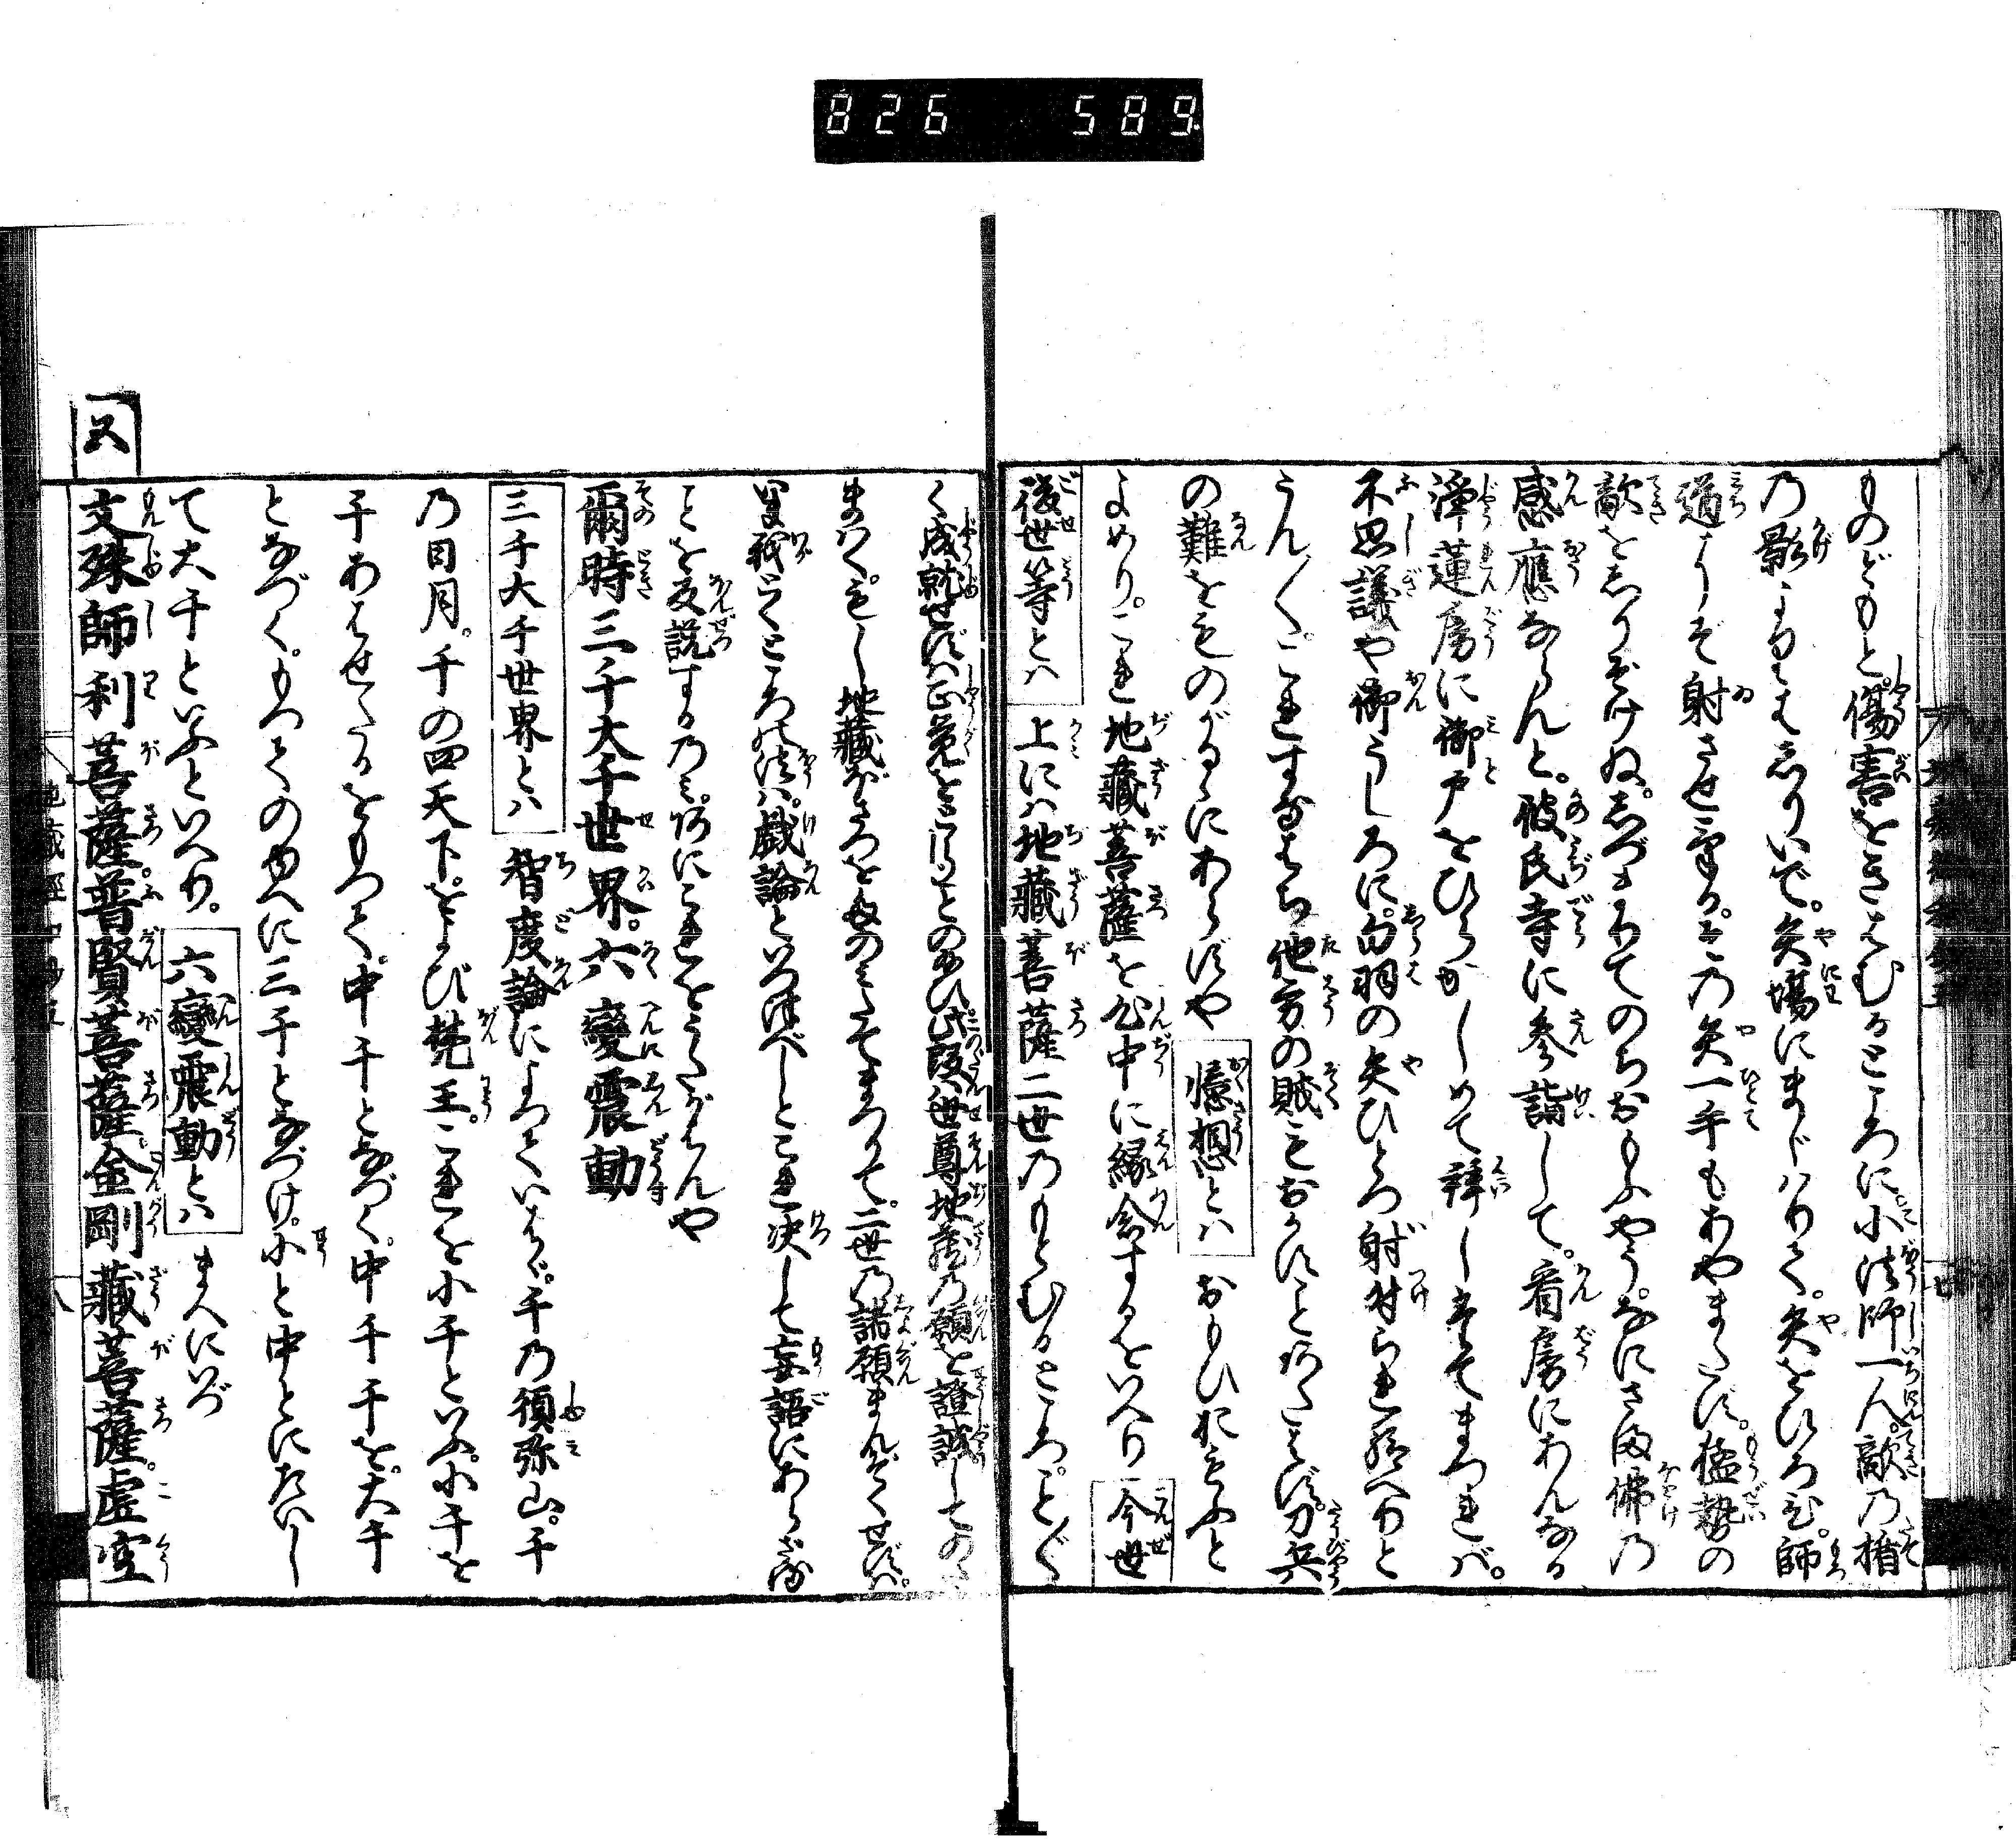 826 589
ものども。と傷害をきはむるところに。小法師一人。敵乃楯
乃影よりはしりいで。矢場にまじハりて。矢をひろひ。師
道よりぞ射させける。その矢一手もあやまたず。猛勢の
敵をしりぞけぬ。しづまりてのちおもふやう。なにさま佛乃
感應ならんと。彼氏寺に参詣して。看房にあんなる
浄蓮房に御戸をひらかしめて拜したてまつれバ。
不思議や御うしろに。白羽の矢ひとつ射付られ給へりと
うん〱。これすなはち他方の賊もおかすことあたはず。刀兵
の難をものがるゝにあらずや 憶想とハ おもひおもふと
よめり。これ地藏菩薩を心中に縁念するをいへり 今世
後世等とハ 上にハ地藏菩薩二世乃もとむるところ。ことごと
く成就せずハ正覚をとらじとのたまひ。此段ハ世尊地藏乃願を證誠しての
まハく。もし地藏ぼさつをたのミたてまつりて。二世乃諸願まんぞくせずバ。
わが
とくところの法ハ。戯論といつつべしとこれ決して妄語にあらざる
ことを反説するのミ。何にこれをうたがはんや
爾時三千大千世界。六變震動
三千大千世界とハ 智度論によつていはく。千乃須弥山。千
乃日月。千の四天下。をよび梵王。これを小千といふ。小千を
千あはせたるをもつて。中千となづく。中千千を。大千
となづく。もつてのゆへに三千となづけ。小と中とにたいし
て大千といふといへり。 六變震動とハ まへにいづ
文殊師利菩薩。普賢菩薩。金剛藏菩薩。虚空